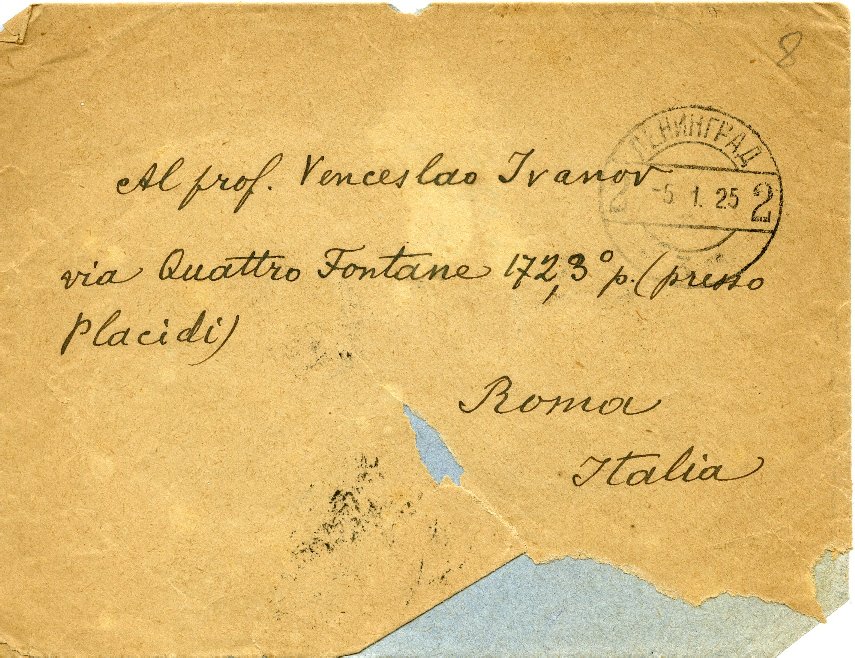 8
ЛЕНИНГРАД
2 -5.1.25 2
Al prof. Venceslao Ivanov
via Quattro Fontane 172, 3º p. (presso
Placidi)
Roma
Italia